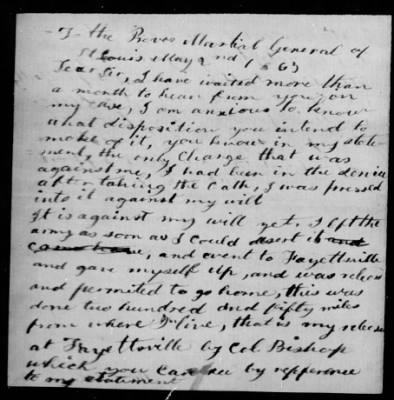 To the Provos Martial General of
St Louis May 2nd 1863
Dear Sir, I have waited more than
a month to hear from you on
my case, I am anxious to know
what disposition you intend to
make of it, you know in my state
ment, the only Charge that was
against me, I had been in the Service
after taking the Oath, I was pressed
into it against my will
It is against my will yet, I left the
army as soon as I could desert it and
came home, and went to Fayettville
and gave myself up, and was releas
and permited to go home, this was
done two hundred and fifty miles
from where I live, that is my release
at Fayettsville by Col. Bishop
which you can see by refference
to my statement